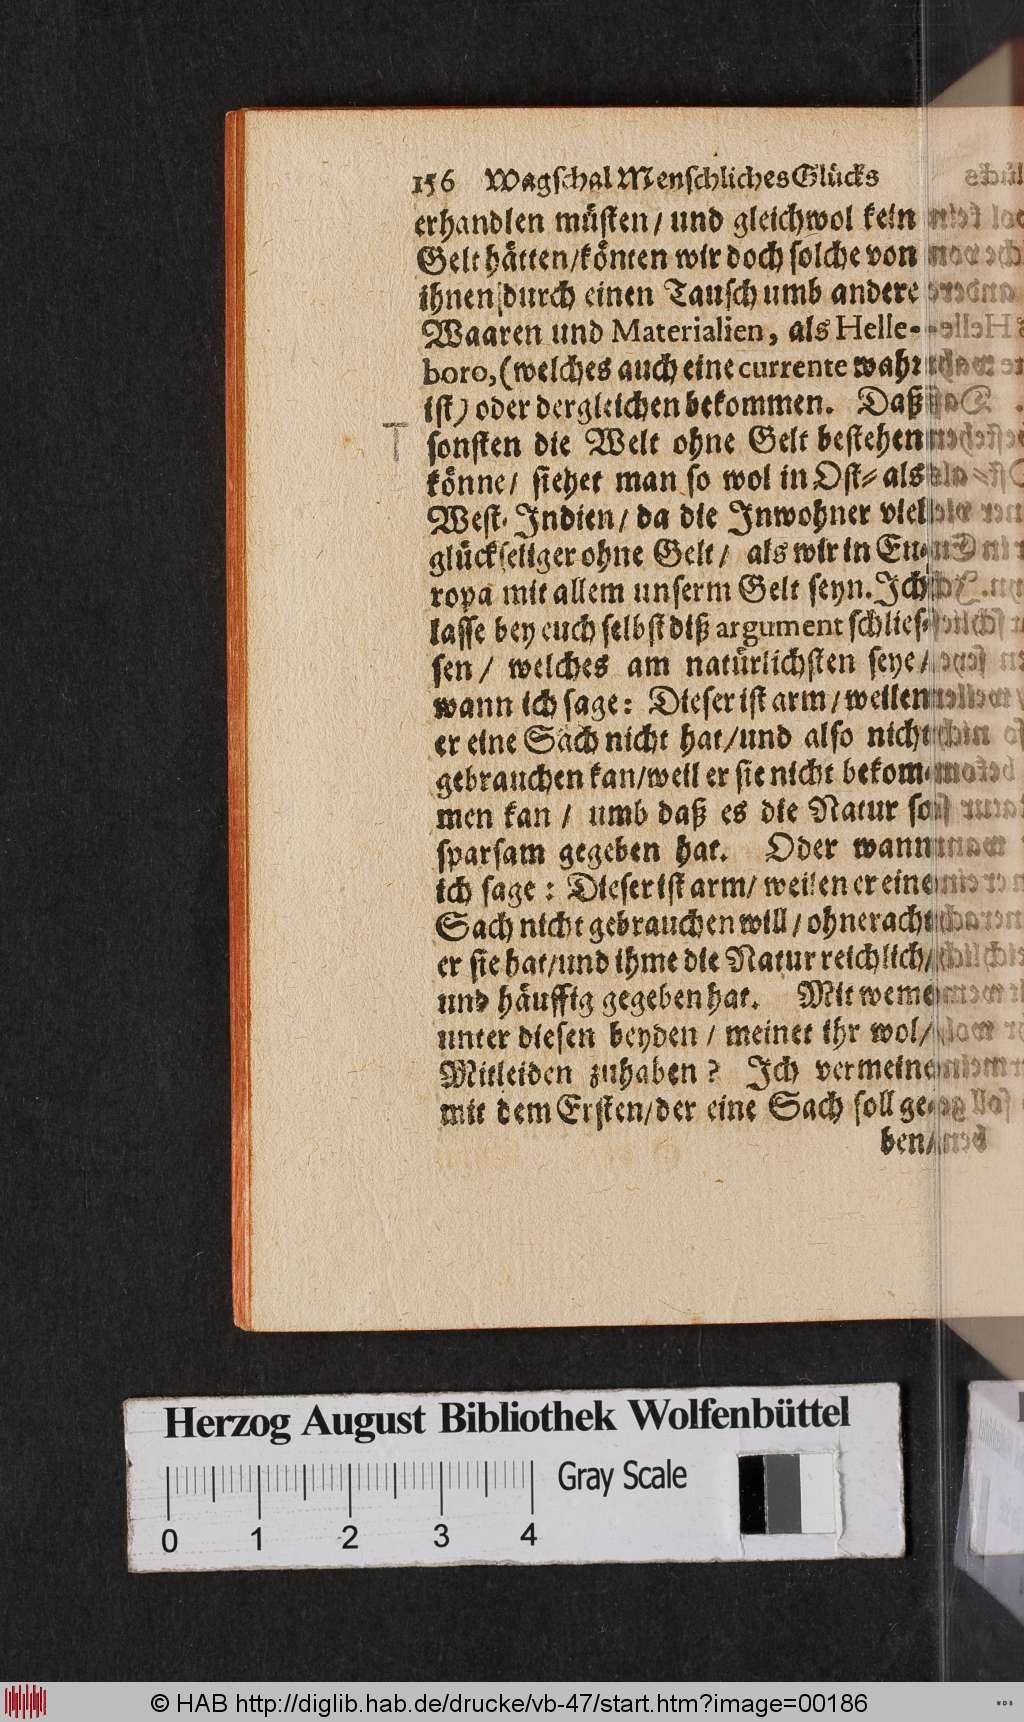 156 Wagschal Menschliches Glücks
erhandlen müsten / und gleichwol kein
Gelt hätten / könten wir doch solche von
ihnen durch einen Tausch umb andere
Waaren und Materialien, als Helle-
boro, (welches auch eine currente wahr
ist) oder dergleichen bekommen. Daß
sonsten die Welt ohne Gelt bestehen
könne / siehet man so wol in Ost- als
West-Indien / da die Inwohner viel
glückseliger ohne Gelt / als wir in Eu-
ropa mit allem unserm Gelt seyn. Ich
lasse bey euch selbst diß argument schlies-
sen / welches am natürlichsten seye /
wann ich sage: Dieser ist arm / weilen
er eine Sach nicht hat / und also nicht
gebrauchen kan / weil er sie nicht bekom-
men kan / umb daß es die Natur so
sparsam gegeben hat. Oder wann
ich sage: Dieser ist arm / weilen er eine
Sach nicht gebrauchen will / ohneracht
er sie hat / und ihme die Natur reichlich /
und häuffig gegeben hat. Mit weme
unter diesen beyden / meinet ihr wol /
Mitleiden zuhaben? Ich vermeine
mit dem Ersten / der eine Sach soll ge-
ben /
Herzog August Bibliothek Wolfenbüttel
Gray Scale
0 1 2 3 4
© HAB http://diglib.hab.de/drucke/vb-47/start.htm?image=00186